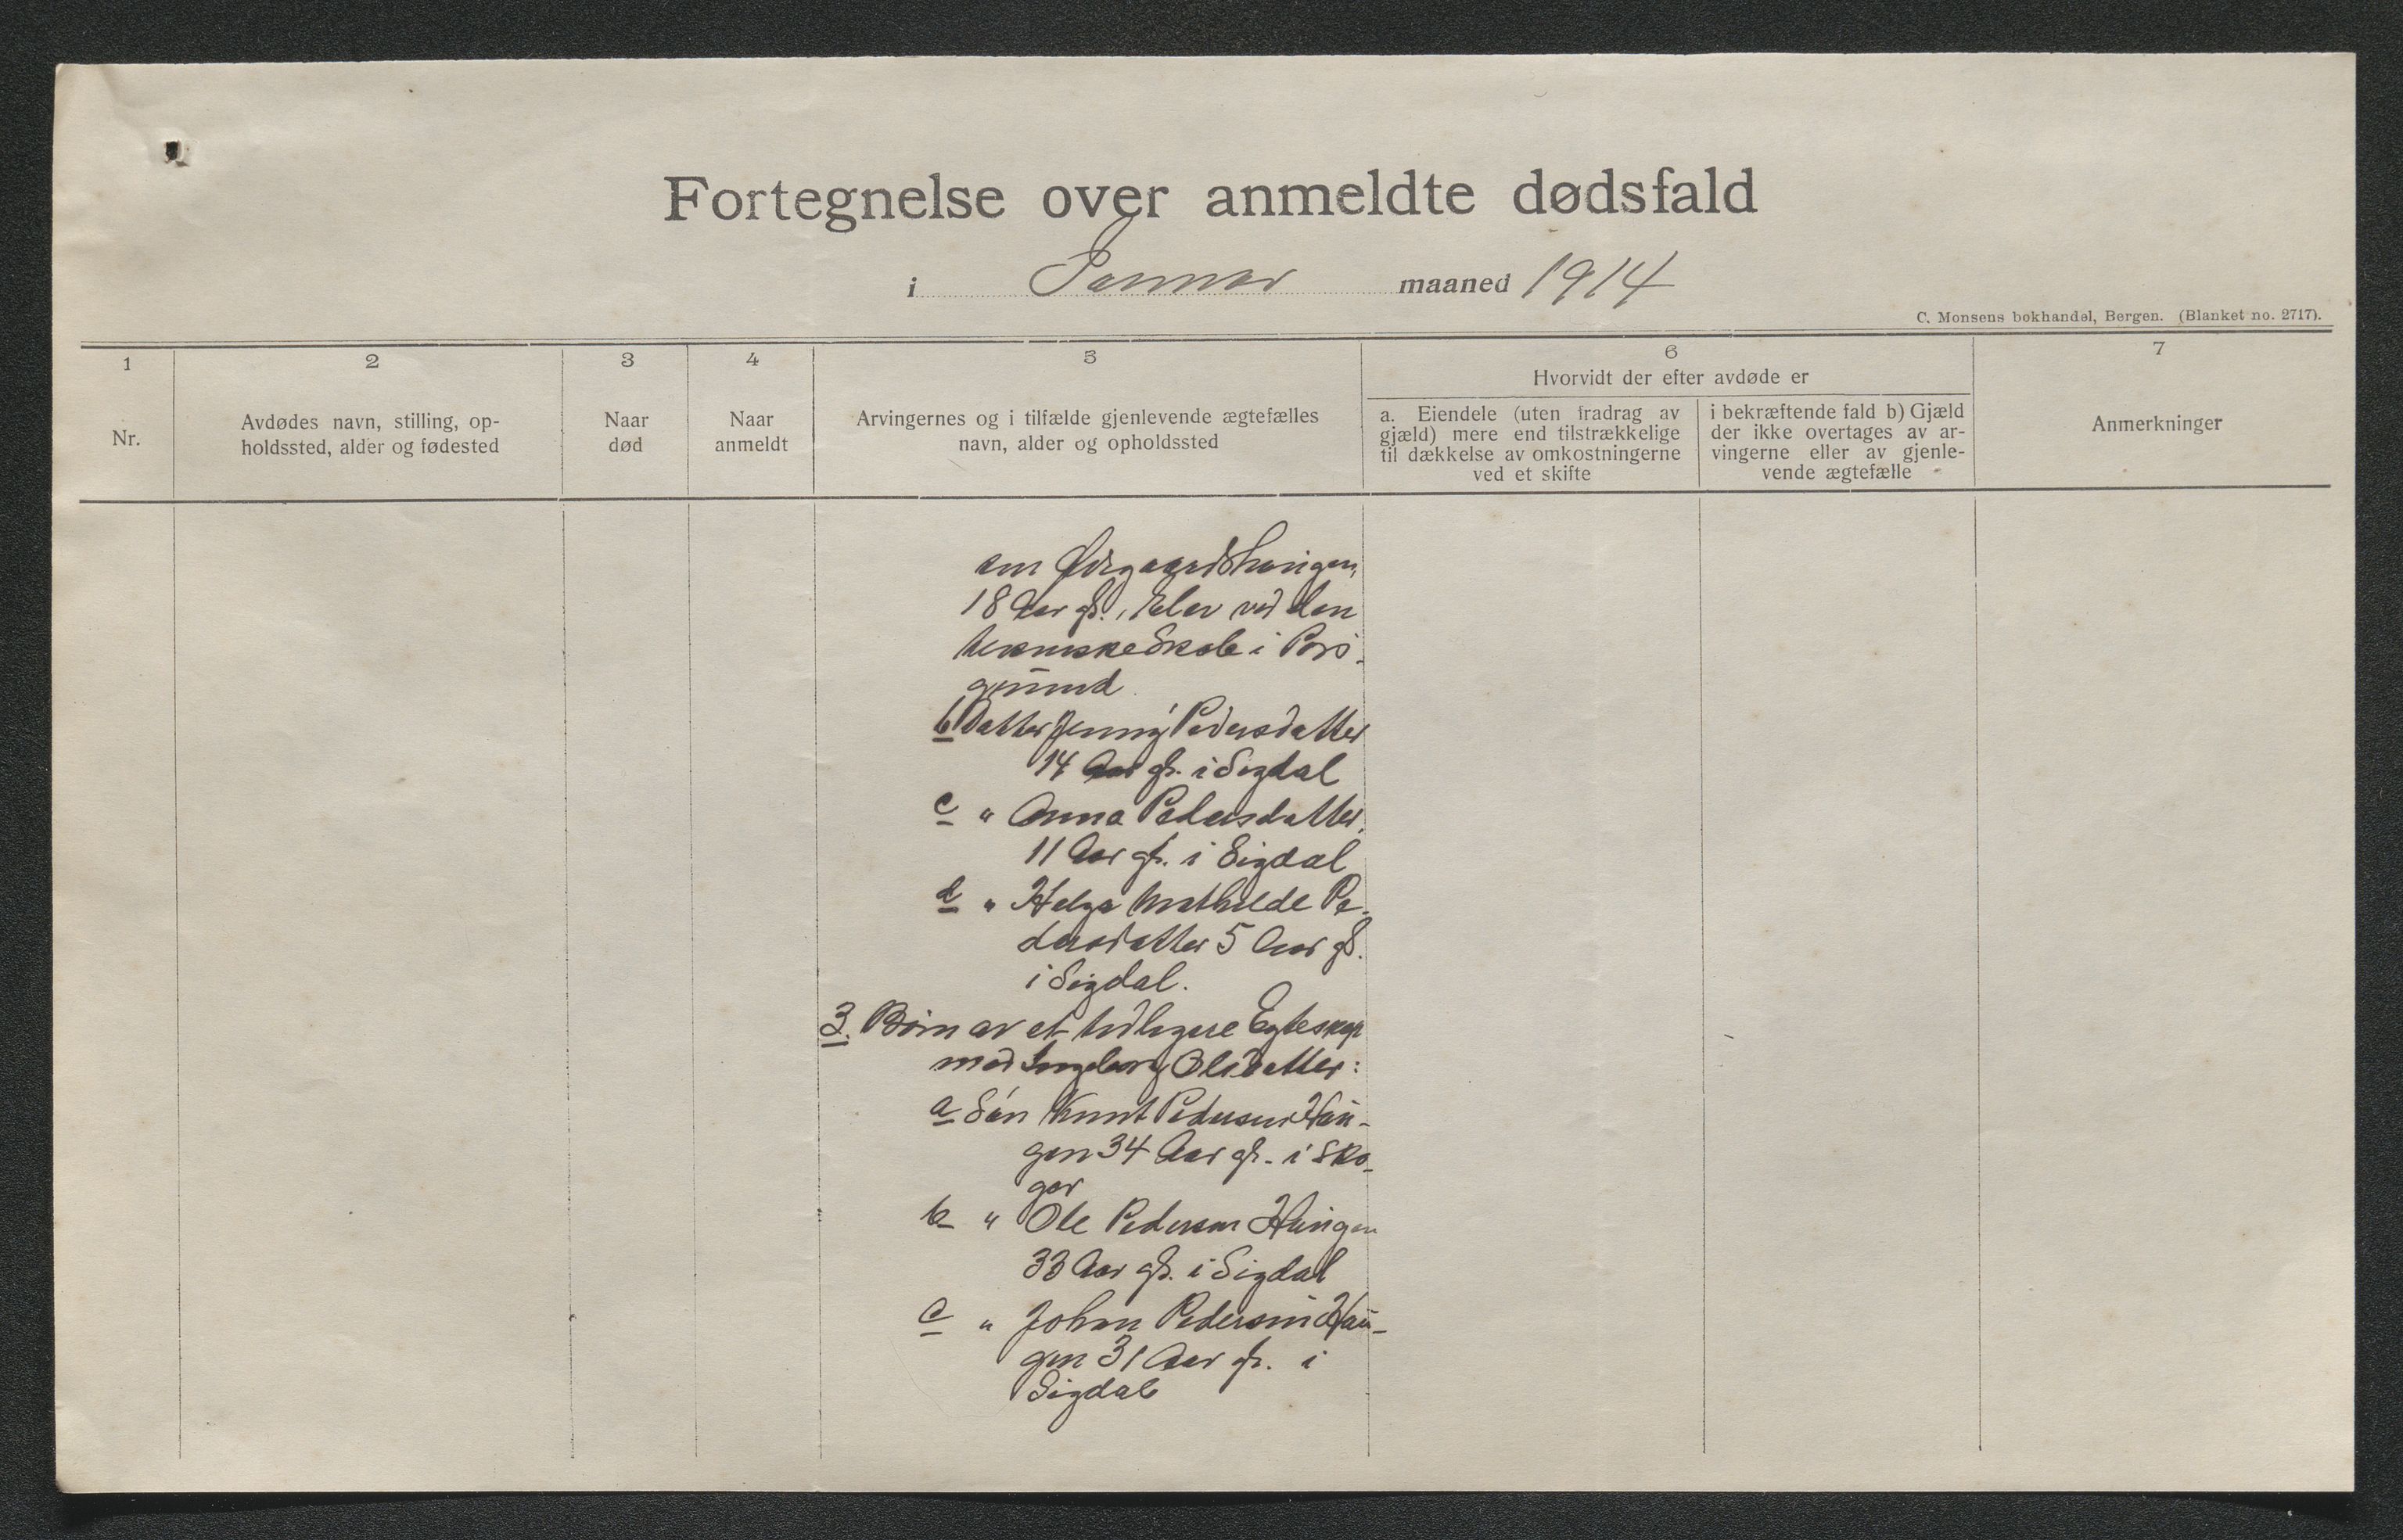 Fortegnelse over anmeldte dødsfald
i Januar maaned 1914
C. Monsens bokhandel, Bergen. (Blanket no. 2717).
1
Nr.
2
Avdødes navn, stilling, op-
holdssted, alder og fødested
3
Naar
død
4
Naar
anmeldt
5
Arvingernes og i tilfælde gjenlevende ægtefælles
navn, alder og opholdssted
6
Hvorvidt der efter avdøde er
a. Eiendele (uten fradrag av
gjæld) mere end tilstrækkelige
til dækkelse av omkostningerne
ved et skifte
i bekræftende fald b) Gjæld
der ikke overtages av ar-
vingerne eller av gjenle-
vende ægtefælle
7
Anmerkninger
18 Aar gl., Elev ved den
tekniske Skole i Pors-
grund
b Datter Jenny Pedersdatter
14 Aar gl. i Sigdal
c " Anna Pedersdatter,
11 Aar gl. i Sigdal
d " Helga Mathilde Pe-
dersdatter 5 Aar gl.
i Sigdal.
3. Børn av et tidligere Egteskap
med Ingeborg Olsdatter:
a Søn Knut Pedersen Hau-
gen 34 Aar gl. i Sko-
ger
b " Ole Pedersen Haugen
33 Aar gl. i Sigdal
c " Johan Pedersen Hau-
gen 31 Aar gl. i
Sigdal